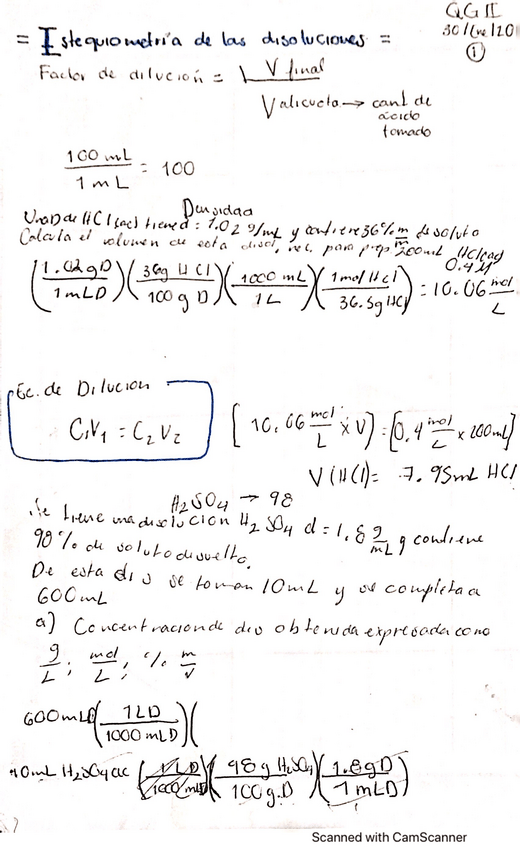 QG II
30/Ene/20
①
= Estequiometría de las disoluciones =
Factor de dilución = V final
V alicuota → cant de
ácido
tomado
100 mL / 1 mL = 100
Densidad
Una D de HCl (ac) tiene d = 1.02 g/mL y contiene 36% m/m de soluto
Calcula el volumen de esta disol, nec. para prep 200mL HCl(ac) 0.4 M
(1.02 g D / 1 mL D) (36g HCl / 100 g D) (1000 mL / 1 L) (1 mol HCl / 36.5g HCl) = 10.06 mol/L
Ec. de Dilucion
C₁V₁ = C₂V₂
[10.06 mol/L x V] = [0.4 mol/L x 200mL]
V (HCl) = 7.95 mL HCl
H₂SO₄ → 98
.Se tiene una disolución H₂SO₄ d = 1.8 g/mL y contiene
98% de soluto disuelto.
De esta dis se toman 10mL y se completa a
600mL
a) Concentración de dis obtenida expresada como
g/L ; mol/L ; % m/v
600mLD (1 L D / 1000 mL D) (
10mL H₂SO₄ ac (1 L D / 1000 mL D) (98 g H₂SO₄ / 100 g.D) (1.8g D / 1 mL D)
Scanned with CamScanner